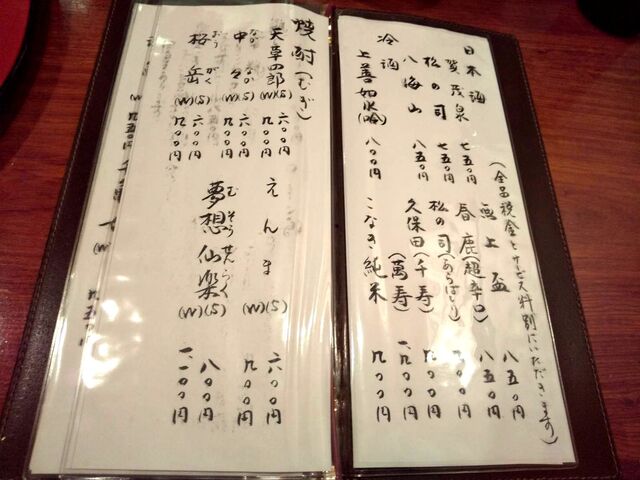 日本酒
(全品税金とサービス料別にいただきます)
賀茂泉 七五〇円
無上盃 八五〇円
松の司 七五〇円
春鹿(超辛口) 八五〇円
八海山 八五〇円
松の司(あらばしり) 九〇〇円
久保田(千寿) 九〇〇円
(萬寿) 一、九〇〇円
冷酒
上善如水(吟) 八〇〇円
こなき純米 九〇〇円
焼酎(むぎ)
天草四郎(W)(S) 六〇〇円 九〇〇円
えんま(W)(S) 六〇〇円 九〇〇円
中々(W)(S) 六〇〇円 九〇〇円
なかなか
夢想仙楽(W)(S) 八〇〇円 一、一〇〇円
むそうせんらく
桜岳(W)(S) 六〇〇円 九〇〇円
おうがく